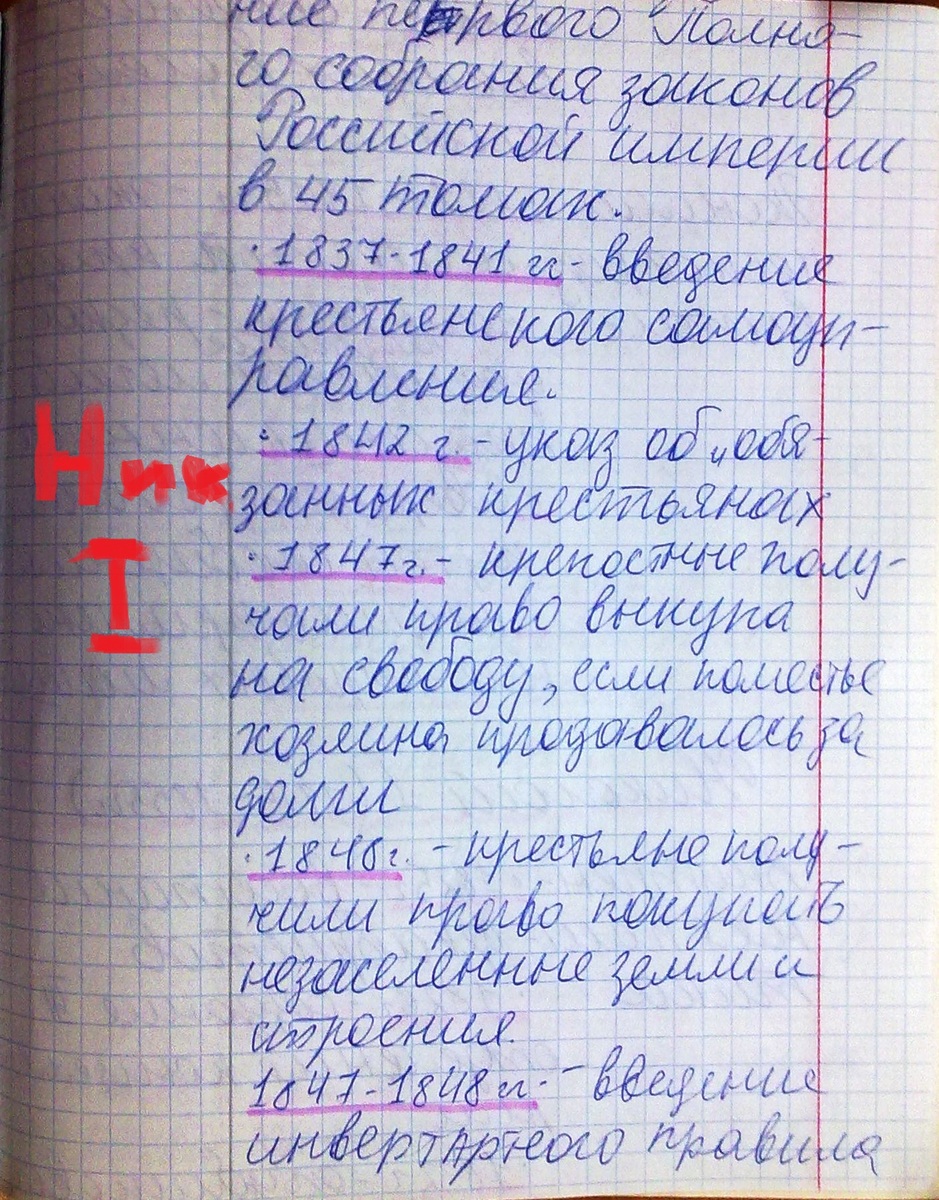 ние первого Полно-
го собрания законов
Российской империи
в 45 томах.
· 1837-1841 гг - введение
крестьянского самоуп-
равления.
· 1842 г. - указ об „обя-
занных крестьянах
· 1847г. - крепостные полу-
чали право выкупа
на свободу, если поместье
хозяина продавалось за
долги
· 1848г. - крестьяне полу-
чили право покупать
незаселенные земли и
строения.
1847-1848 гг. - введение
инвертарного правила
Ник
I